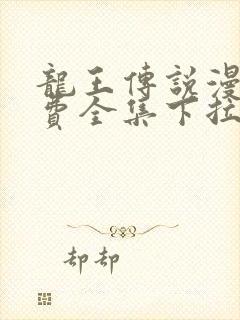 龍王傳說漫
費全集下拉
却却